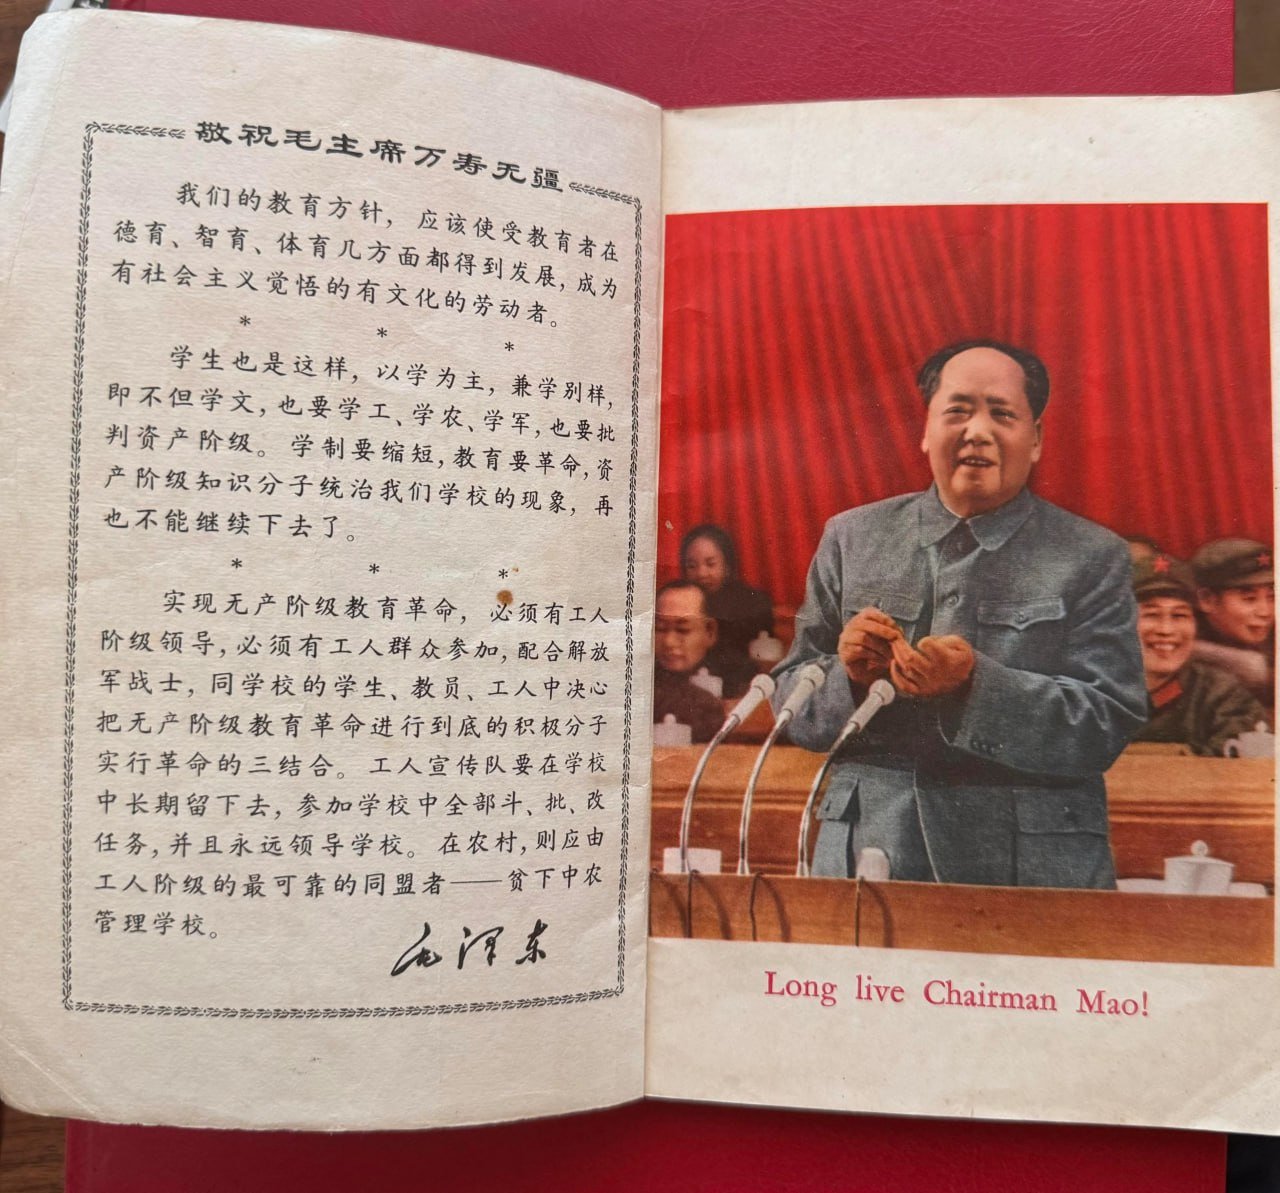 敬祝毛主席万寿无疆
我们的教育方针，应该使受教育者在
德育、智育、体育几方面都得到发展，成为
有社会主义觉悟的有文化的劳动者。
* * *
学生也是这样，以学为主，兼学别样，
即不但学文，也要学工、学农、学军，也要批
判资产阶级。学制要缩短，教育要革命，资
产阶级知识分子统治我们学校的现象，再
也不能继续下去了。
* * *
实现无产阶级教育革命，必须有工人
阶级领导，必须有工人群众参加，配合解放
军战士，同学校的学生、教员、工人中决心
把无产阶级教育革命进行到底的积极分子
实行革命的三结合。工人宣传队要在学校
中长期留下去，参加学校中全部斗、批、改
任务，并且永远领导学校。在农村，则应由
工人阶级的最可靠的同盟者——贫下中农
管理学校。
毛泽东
Long live Chairman Mao!